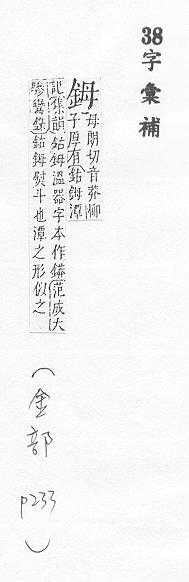 38字彙補
鉧
母朗切音莽柳
子厚有鈷鉧潭
記集韻鈷鉧溫器字本作范成大
驂鸞錄鈷鉧熨斗也潭之形似之
(金部 p233)